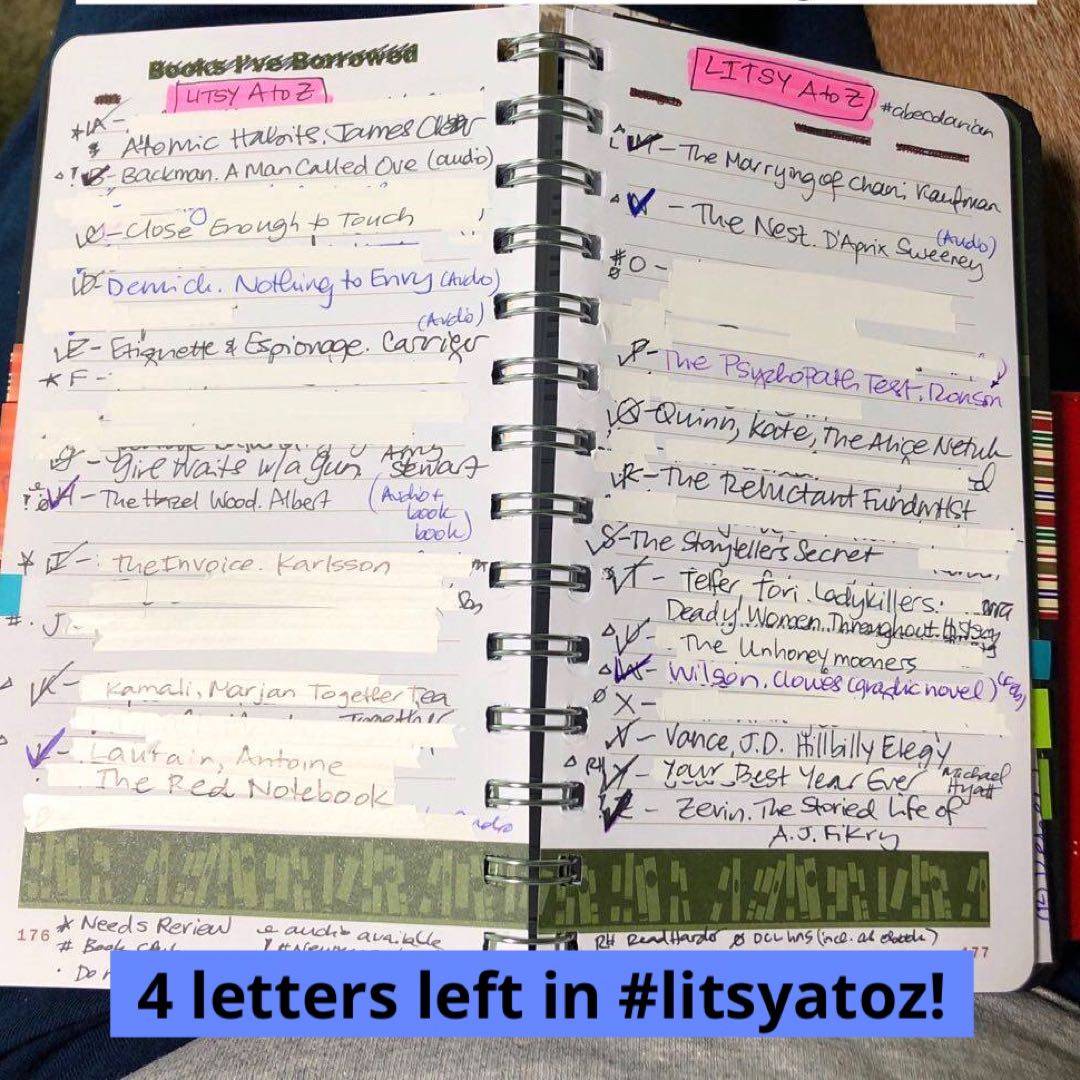 Books I've Borrowed
LITSY A to Z
A -
Atomic Habits. James Clear
B - Backman. A Man Called Ove (audio)
C - Close Enough to Touch
D - Demick. Nothing to Envy (Audio)
(Audio)
E - Etiquette & Espionage. Carriger
* F -
G - Girl Waits w/a Gun, Amy Stewart
H - The Hazel Wood. Albert (Audio + book book)
* I - The Invoice. Karlsson
# J -
K - Kamali, Marjan Together Tea
Together
L - Lautain, Antoine
The Red Notebook
176
* Needs Review
e audio available
# Book
LITSY A to Z
#abecdarian
M - The Marrying of Chani Kaufman
N - The Nest. D'Aprix Sweeney (Audio)
# O -
P - The Psychopath Test. Ronson
Q - Quinn, Kate, The Alice Netwk
R - The Reluctant Fundmtlst
S - The Storyteller's Secret
T - Telfer, Tori. Ladykillers.
Deadly Women Throughout History
U - The Unhoneymooners
W - Wilson. Clowes (graphic novel)
Ø X -
V - Vance, J.D. Hillbilly Elegy
RH Y - Your Best Year Ever Michael Hyatt
Z - Zevin. The Storied Life of
A.J. Fikry
RH ReadHarder
77
4 letters left in #litsyatoz!